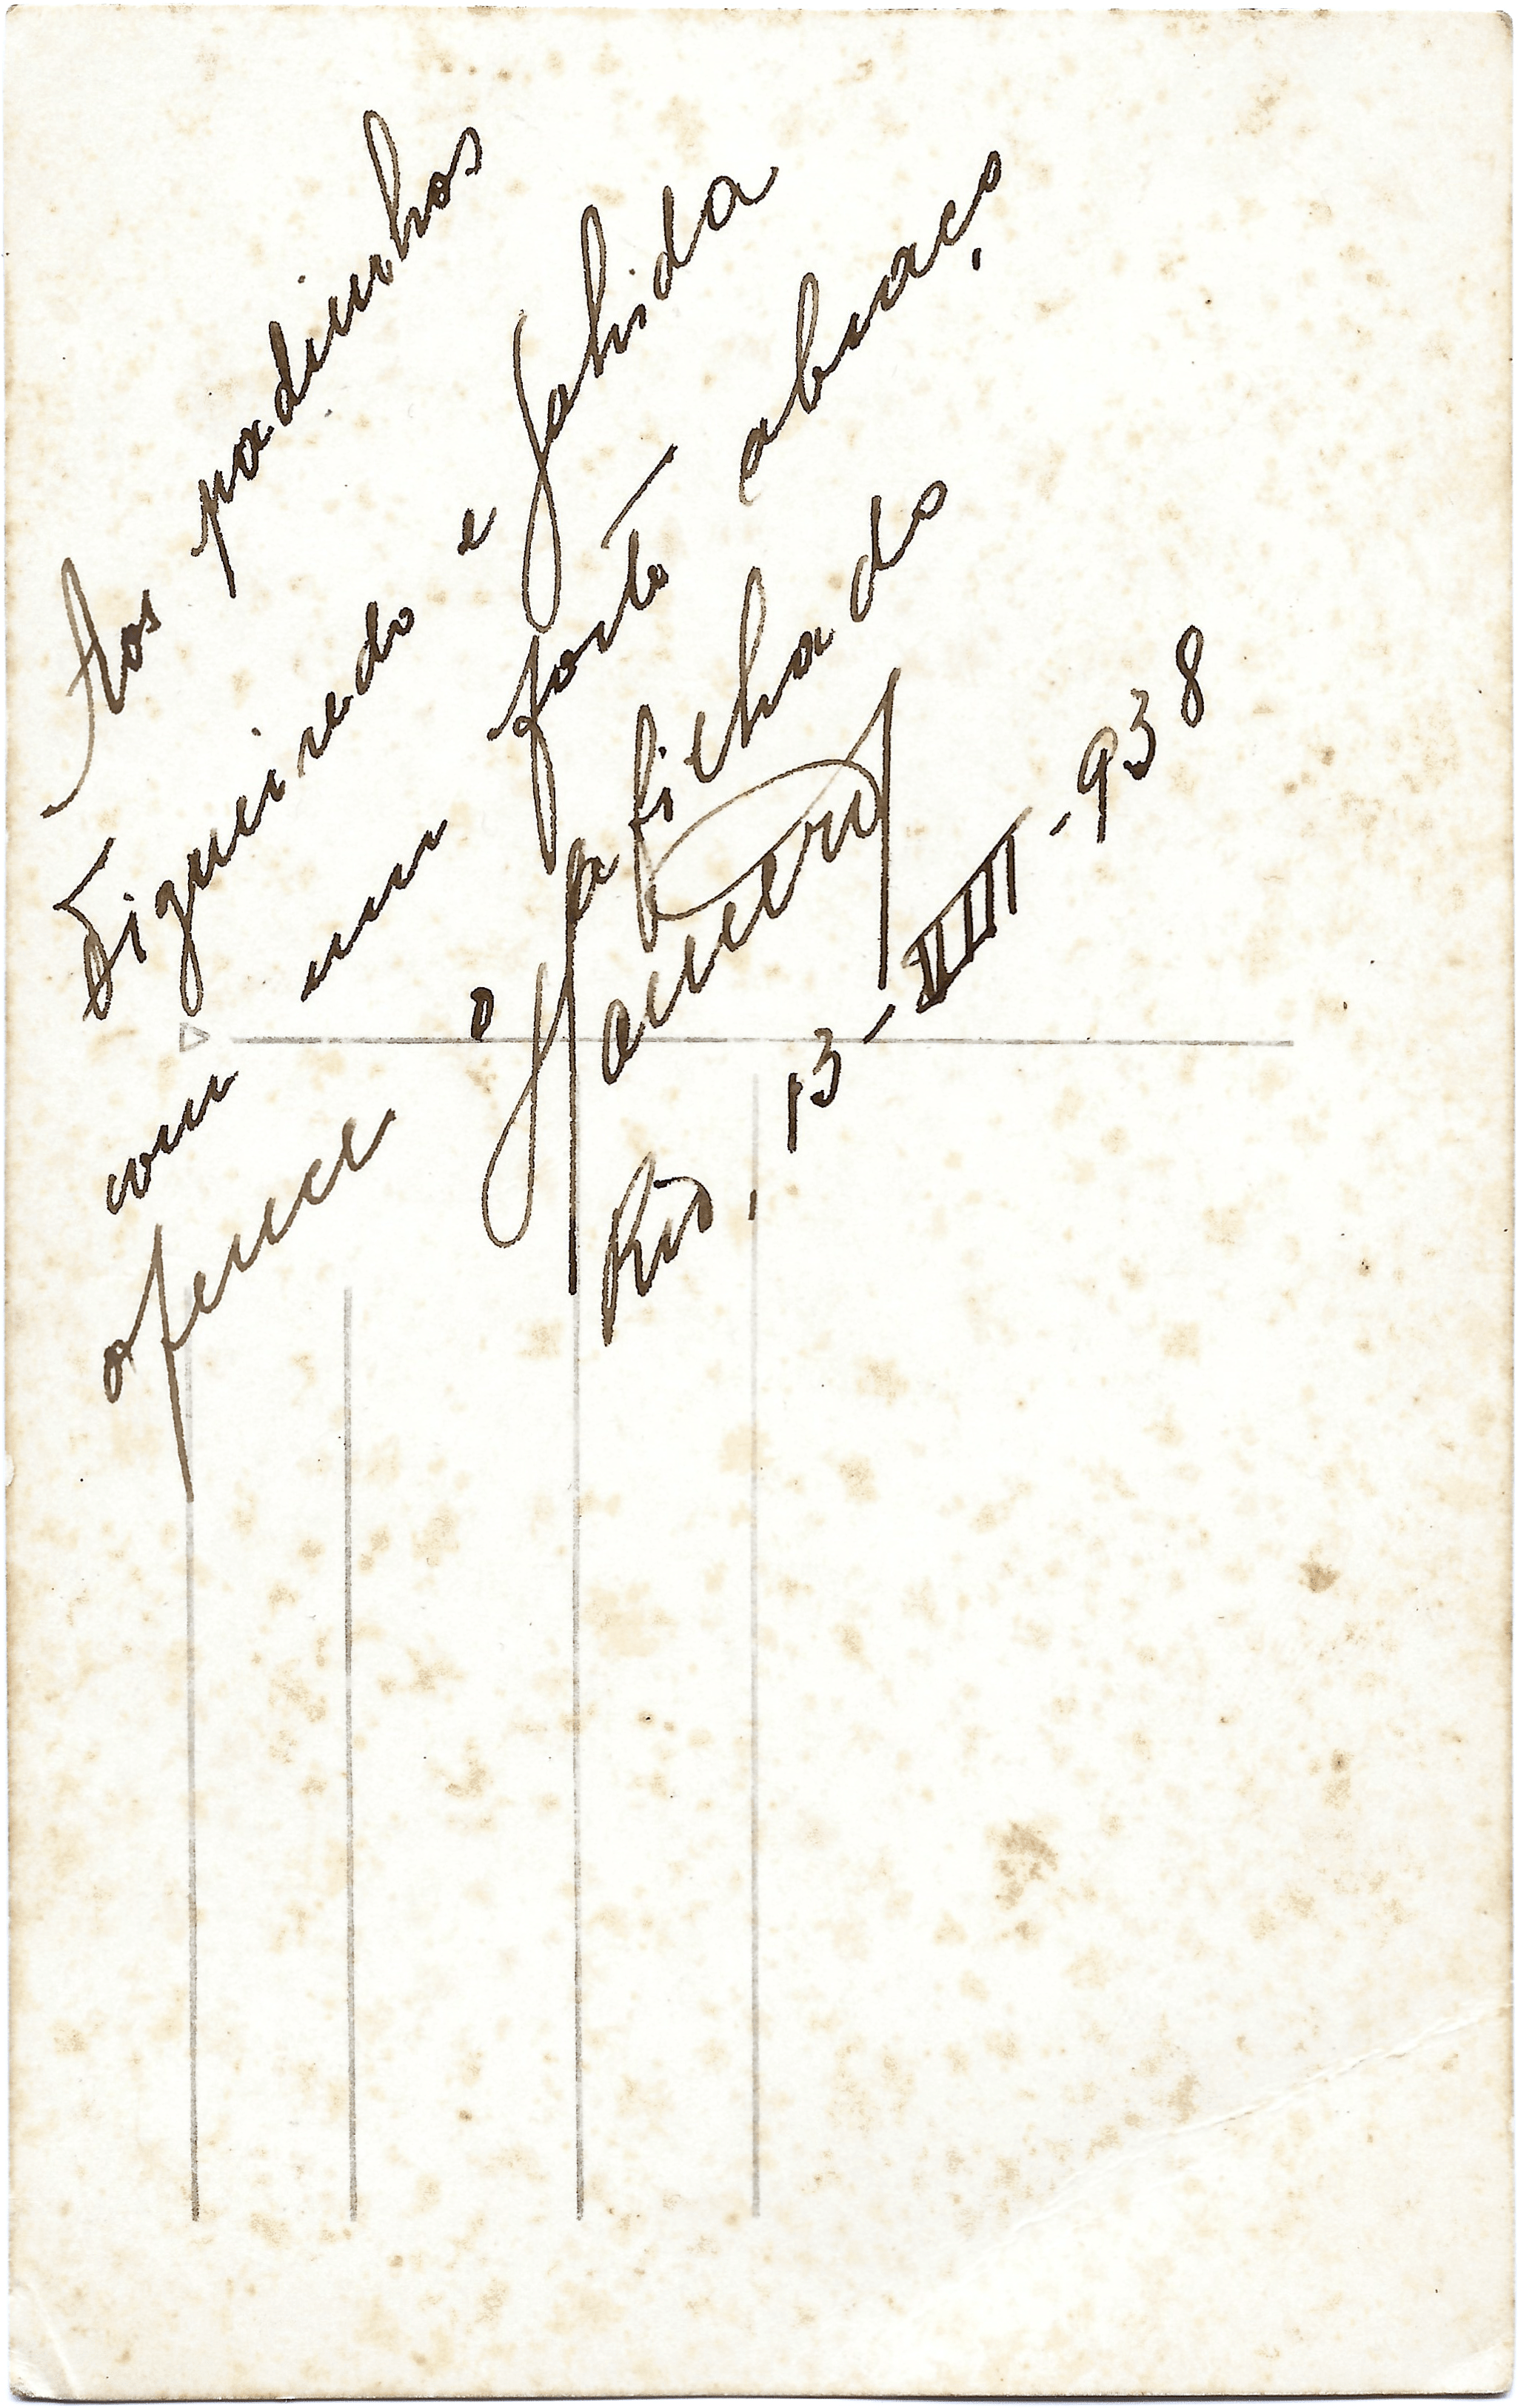 Aos padinhos
Figueiredo e Jahida
com um forte abraço
oferece o afilhado
Rio, 13-VIII-938